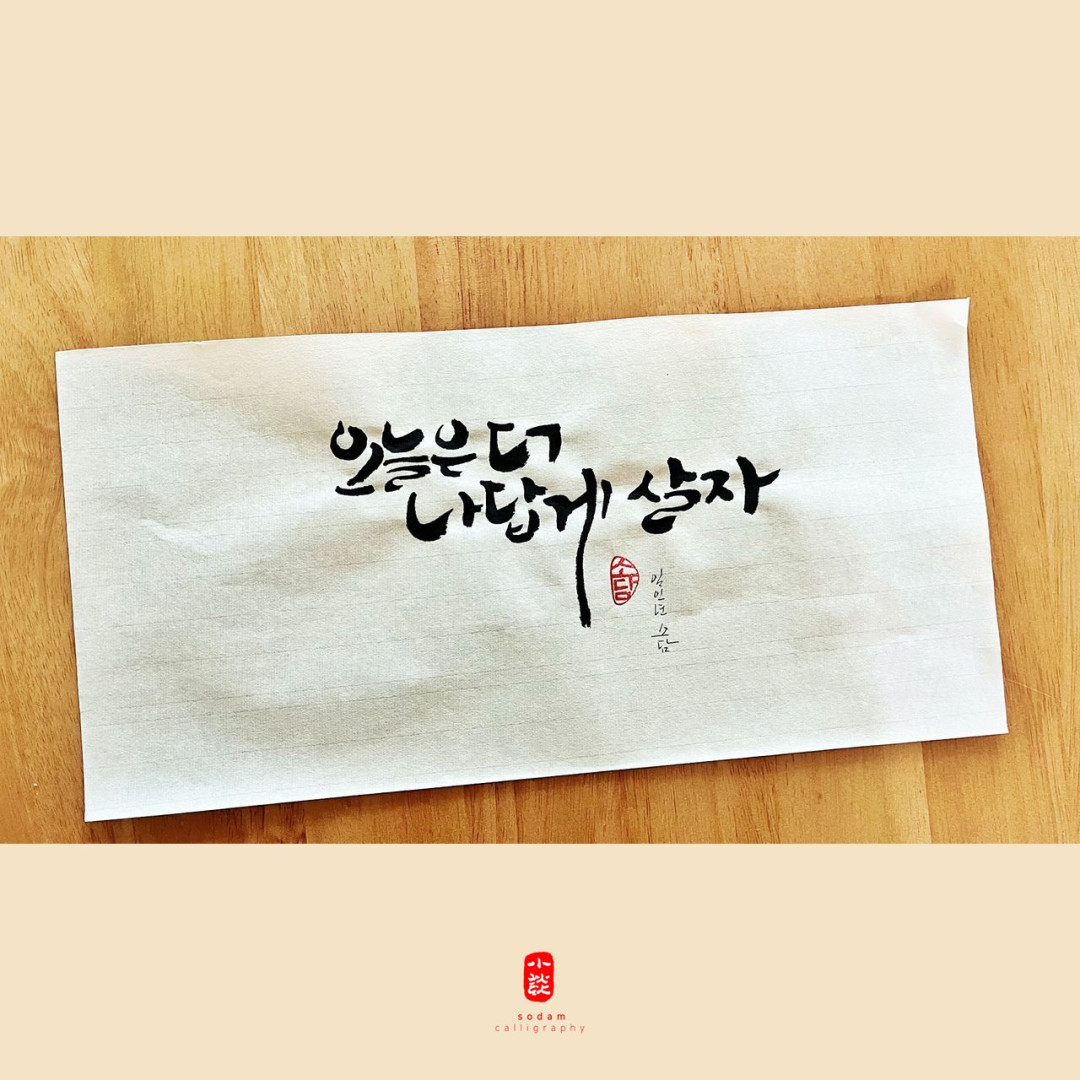 오늘은 더
나답게 살자
소담
소담
小談
sodam
calligraphy